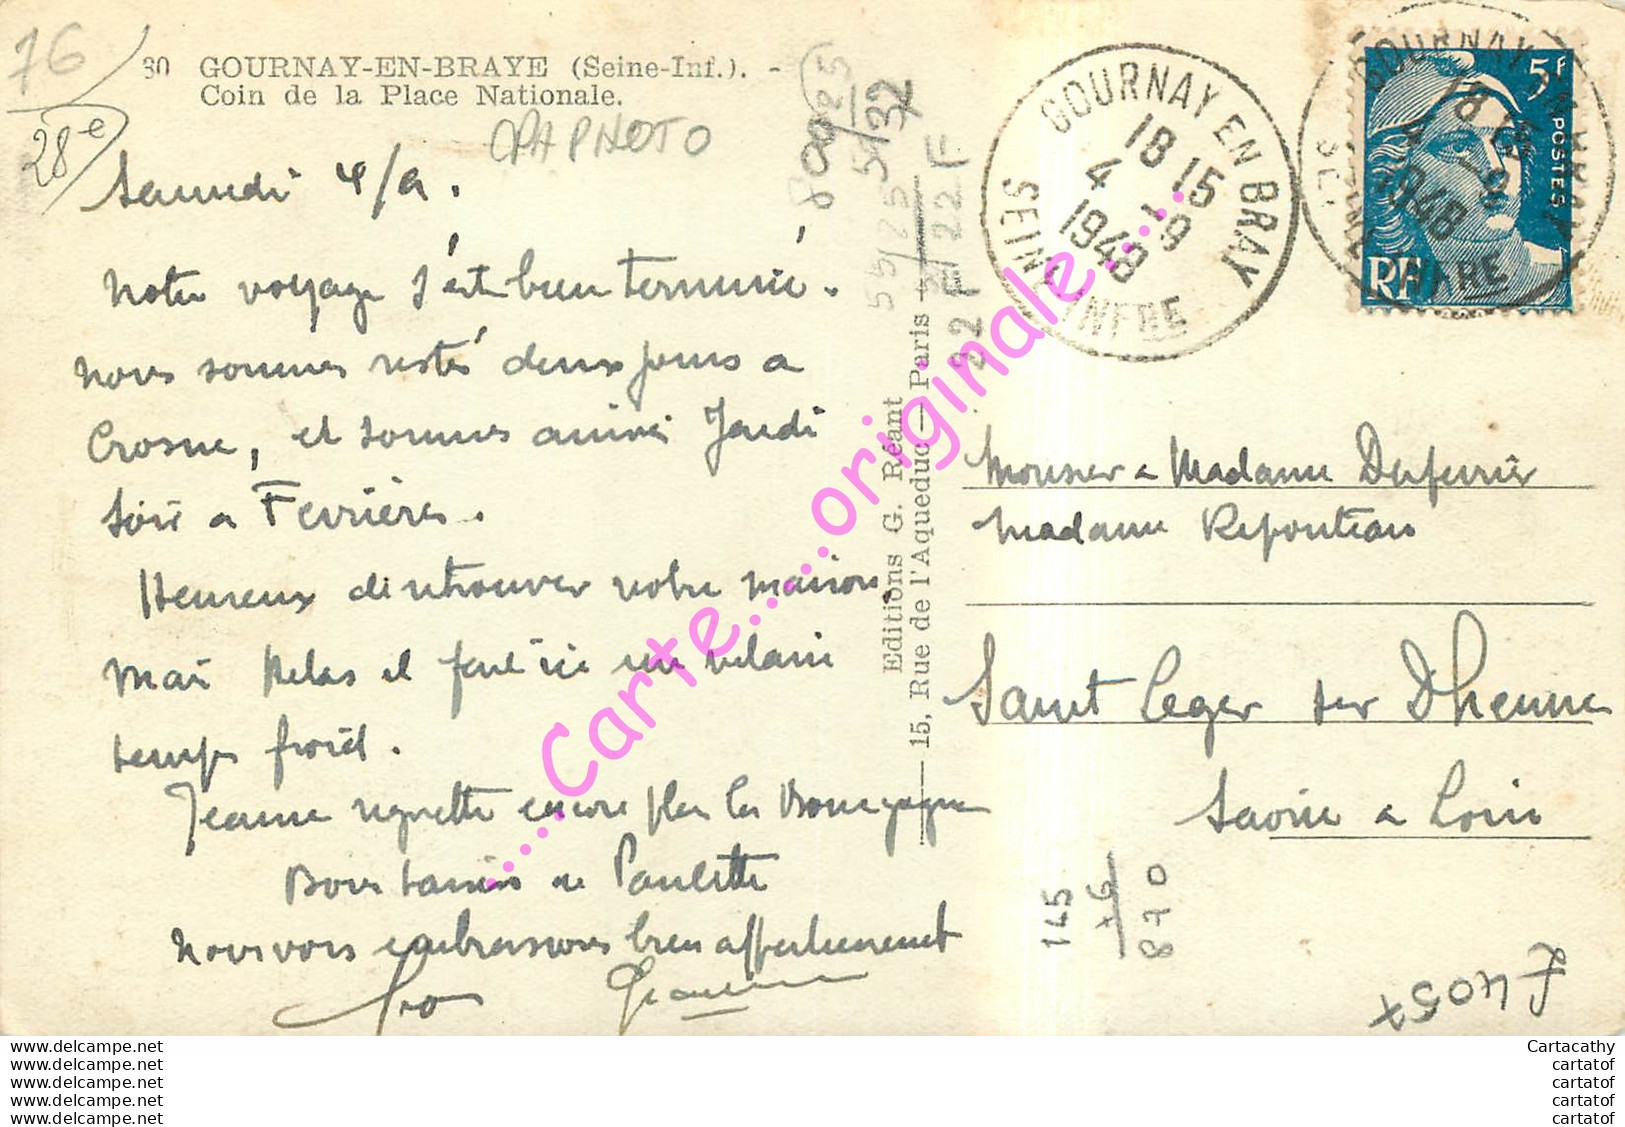 76
28e
30 GOURNAY-EN-BRAYE (Seine-Inf.). -
Coin de la Place Nationale.
CPA PHOTO
Samedi 4/9.
Notre voyage s'est bien terminé.
nous sommes restés deux jours a
Crosne, et sommes arrivés Jeudi
soir a Ferrières.
Heureux de retrouver notre maison
Mais Helas il fait ici un vilain
temps froid.
Jeanne regrette encore plus la Bourgogne
Bons baisers de Paulette
Nous vous embrassons bien affectueusement
Editions G. Réant
15, Rue de l'Aqueduc — Paris
22 F
22 F
5/32
55/25
GOURNAY EN BRAY
18 15
4 - 9
1948
SEINE INFRE
GOURNAY EN BRAY
18 15
4 - 9
1948
SEINE INFRE
5F
POSTES
RF
Monsieur & Madame
Madame
Saint Leger sur Dheune
Saone & Loire
145
+6
870
....Carte....originale....
www.delcampe.net
www.delcampe.net
www.delcampe.net
www.delcampe.net
www.delcampe.net
Cartacathy
cartatof
cartatof
cartatof
cartatof